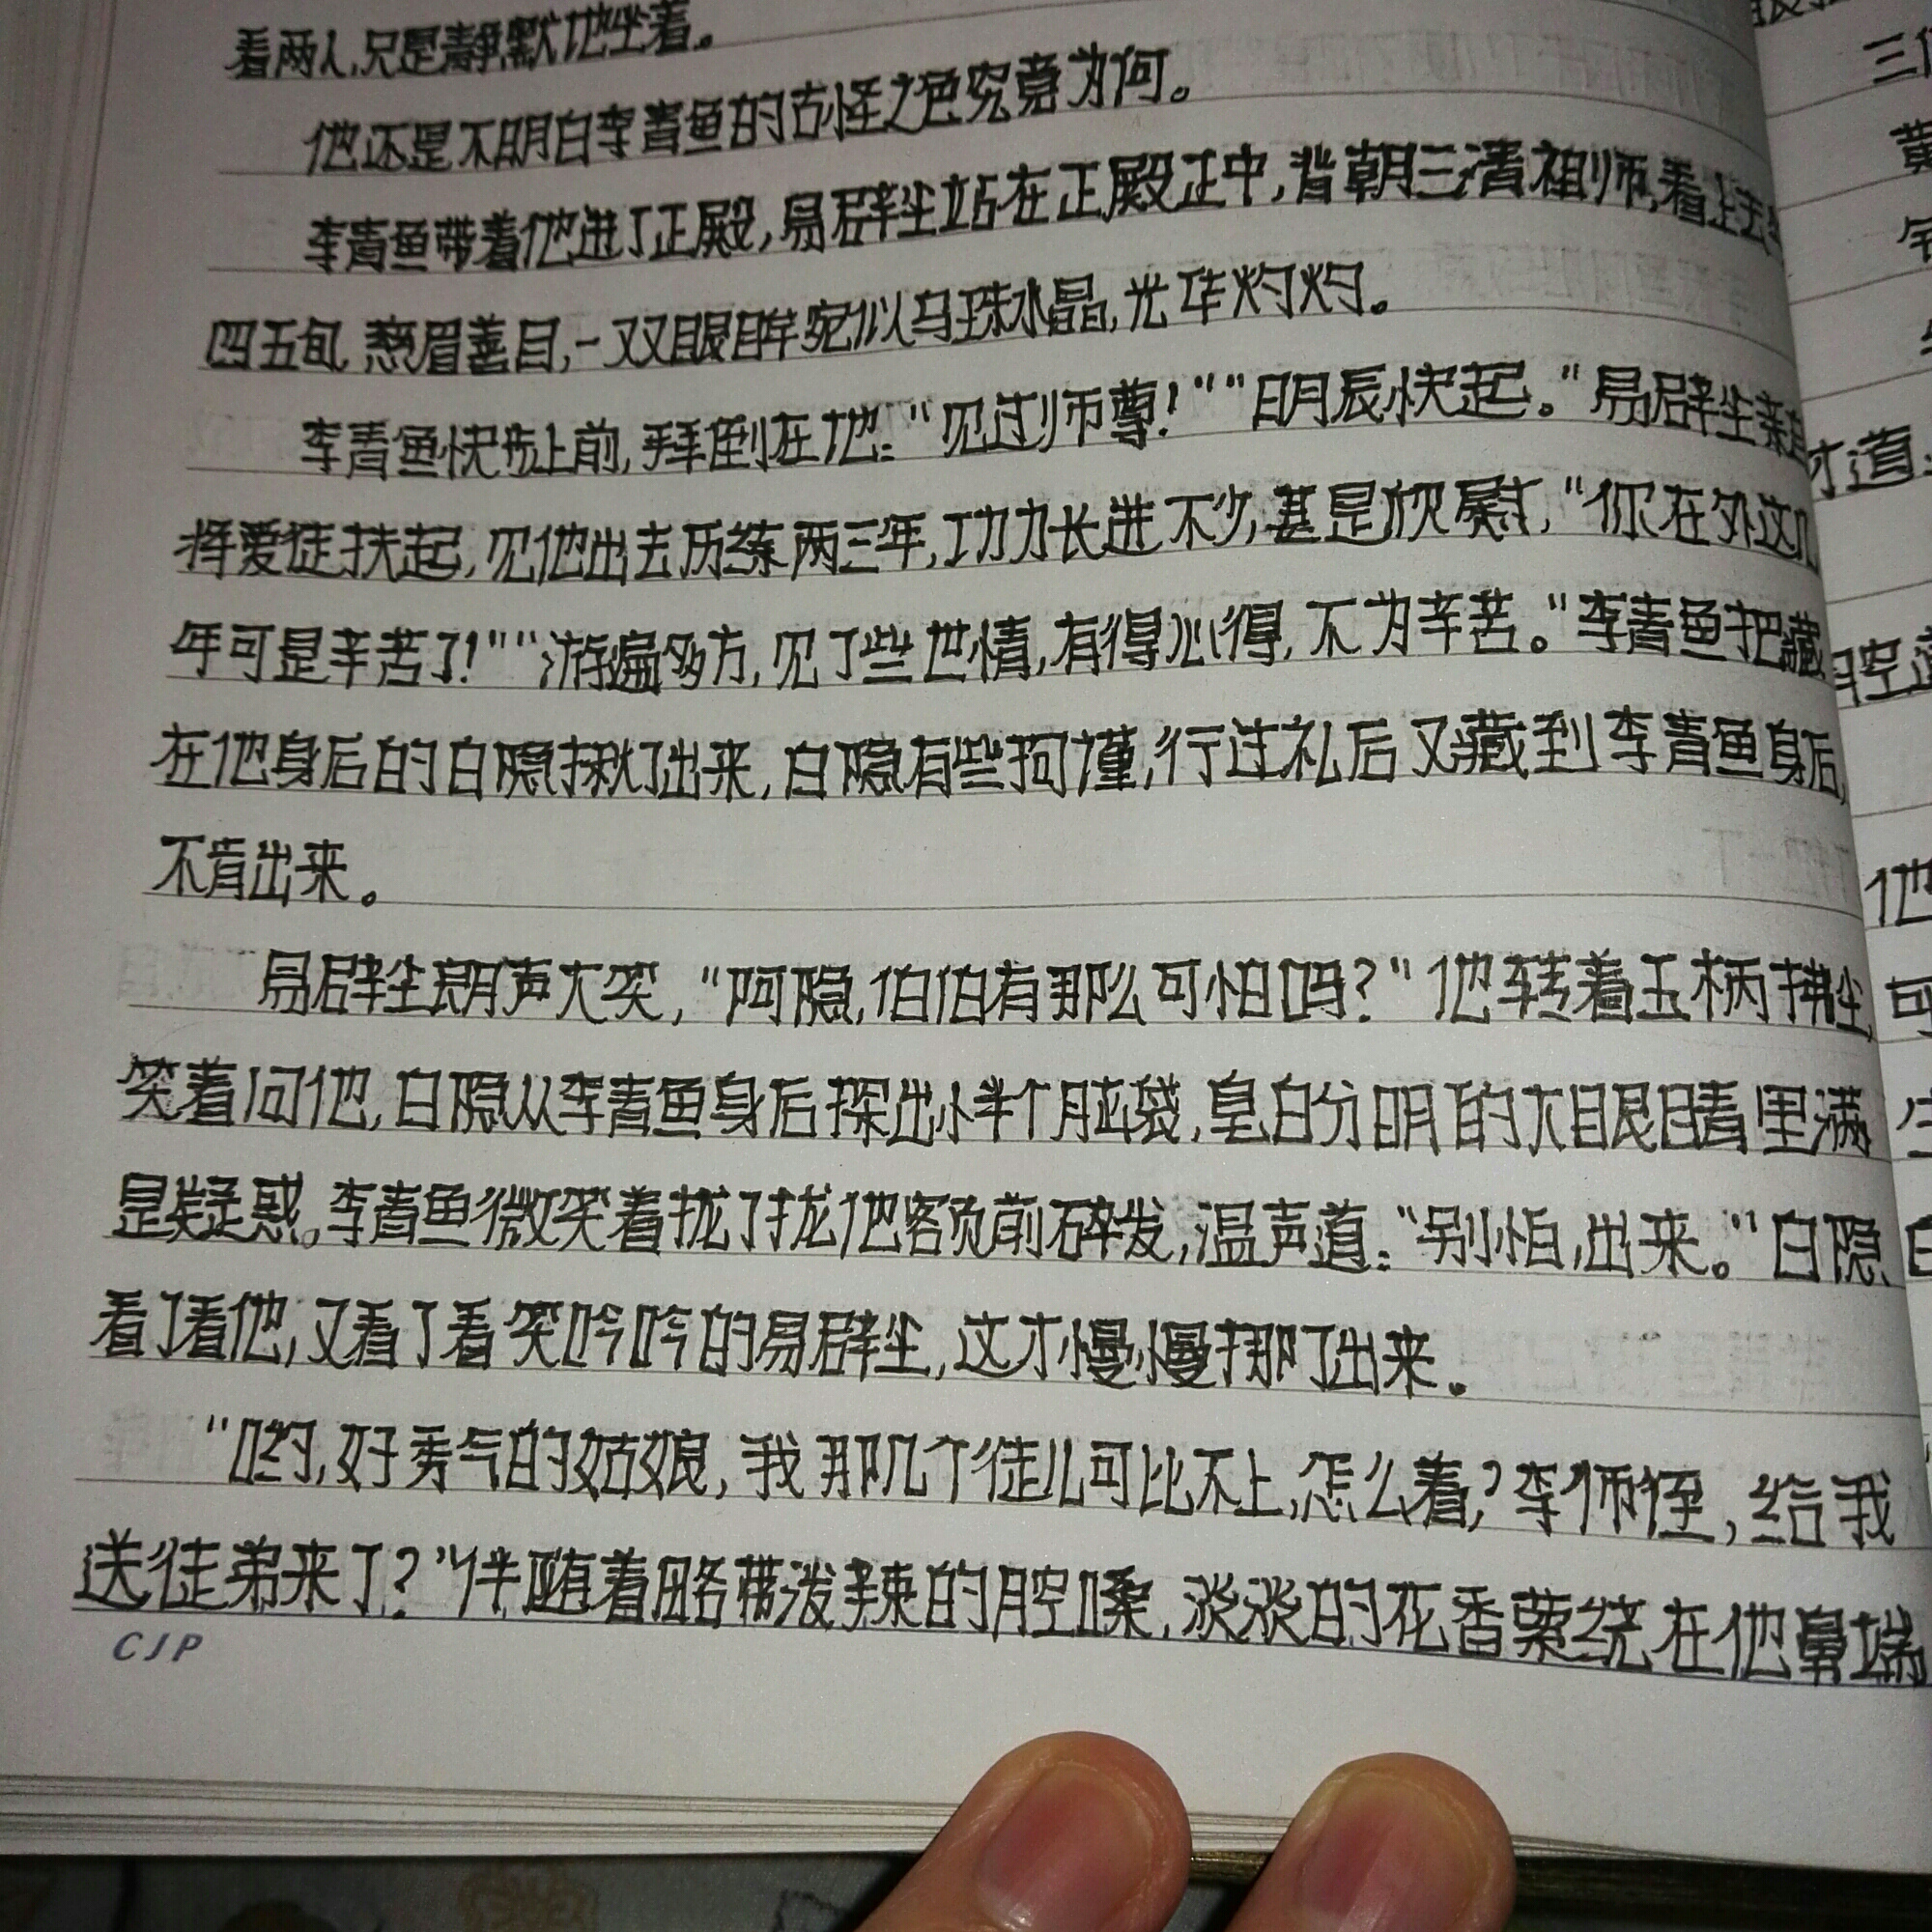 看两人,只是静默地坐着。
他还是不明白李青鱼的古怪之色究竟为何。
李青鱼带着他进了正殿,易辟尘站在正殿正中,背朝三清祖师,看上去
四五旬,慈眉善目,一双眼眸宛似乌珠水晶,光华灼灼。
李青鱼快步上前,拜倒在地:“见过师尊!”“明辰快起。”易辟尘亲自
将爱徒扶起,见他出去历练两三年,功力长进不少,甚是欣慰,“你在外这几
年可是辛苦了!”“游遍多方,见了些世情,有得心得,不为辛苦。”李青鱼把藏
在他身后的白隐揪了出来,白隐有些拘谨,行过礼后又藏到李青鱼身后,
不肯出来。
易辟尘朗声大笑,“阿隐,伯伯有那么可怕吗?”他转着玉柄拂尘,
笑着问他,白隐从李青鱼身后探出小半个脑袋,皂白分明的大眼睛里满
是疑惑。李青鱼微笑着拢了拢他额前碎发,温声道:“别怕,出来。”白隐
看了看他,又看了看笑吟吟的易辟尘,这才慢慢挪了出来。
“哟,好秀气的姑娘,我那几个徒儿可比不上,怎么着?李师侄,给我
送徒弟来了?”伴随着略带泼辣的腔嗓,淡淡的花香萦绕在他鼻端
CJP
三
才道:
腔
他
可